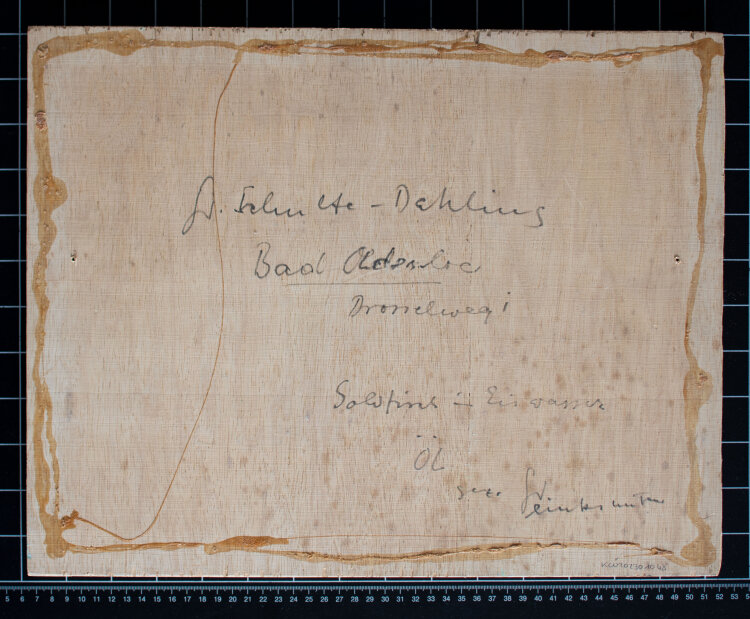 Schulte-Dahling
Bad Oldesloe
Drosselweg 1
Goldfisch in Eiswasser
Öl
gez.
5 6 7 8 9 10 11 12 13 14 15 16 17 18 19 20 21 22 23 24 25 26 27 28 29 30 31 32 33 34 35 36 37 38 39 40 41 42 43 44 45 46 47 48 49 50 51 52 53